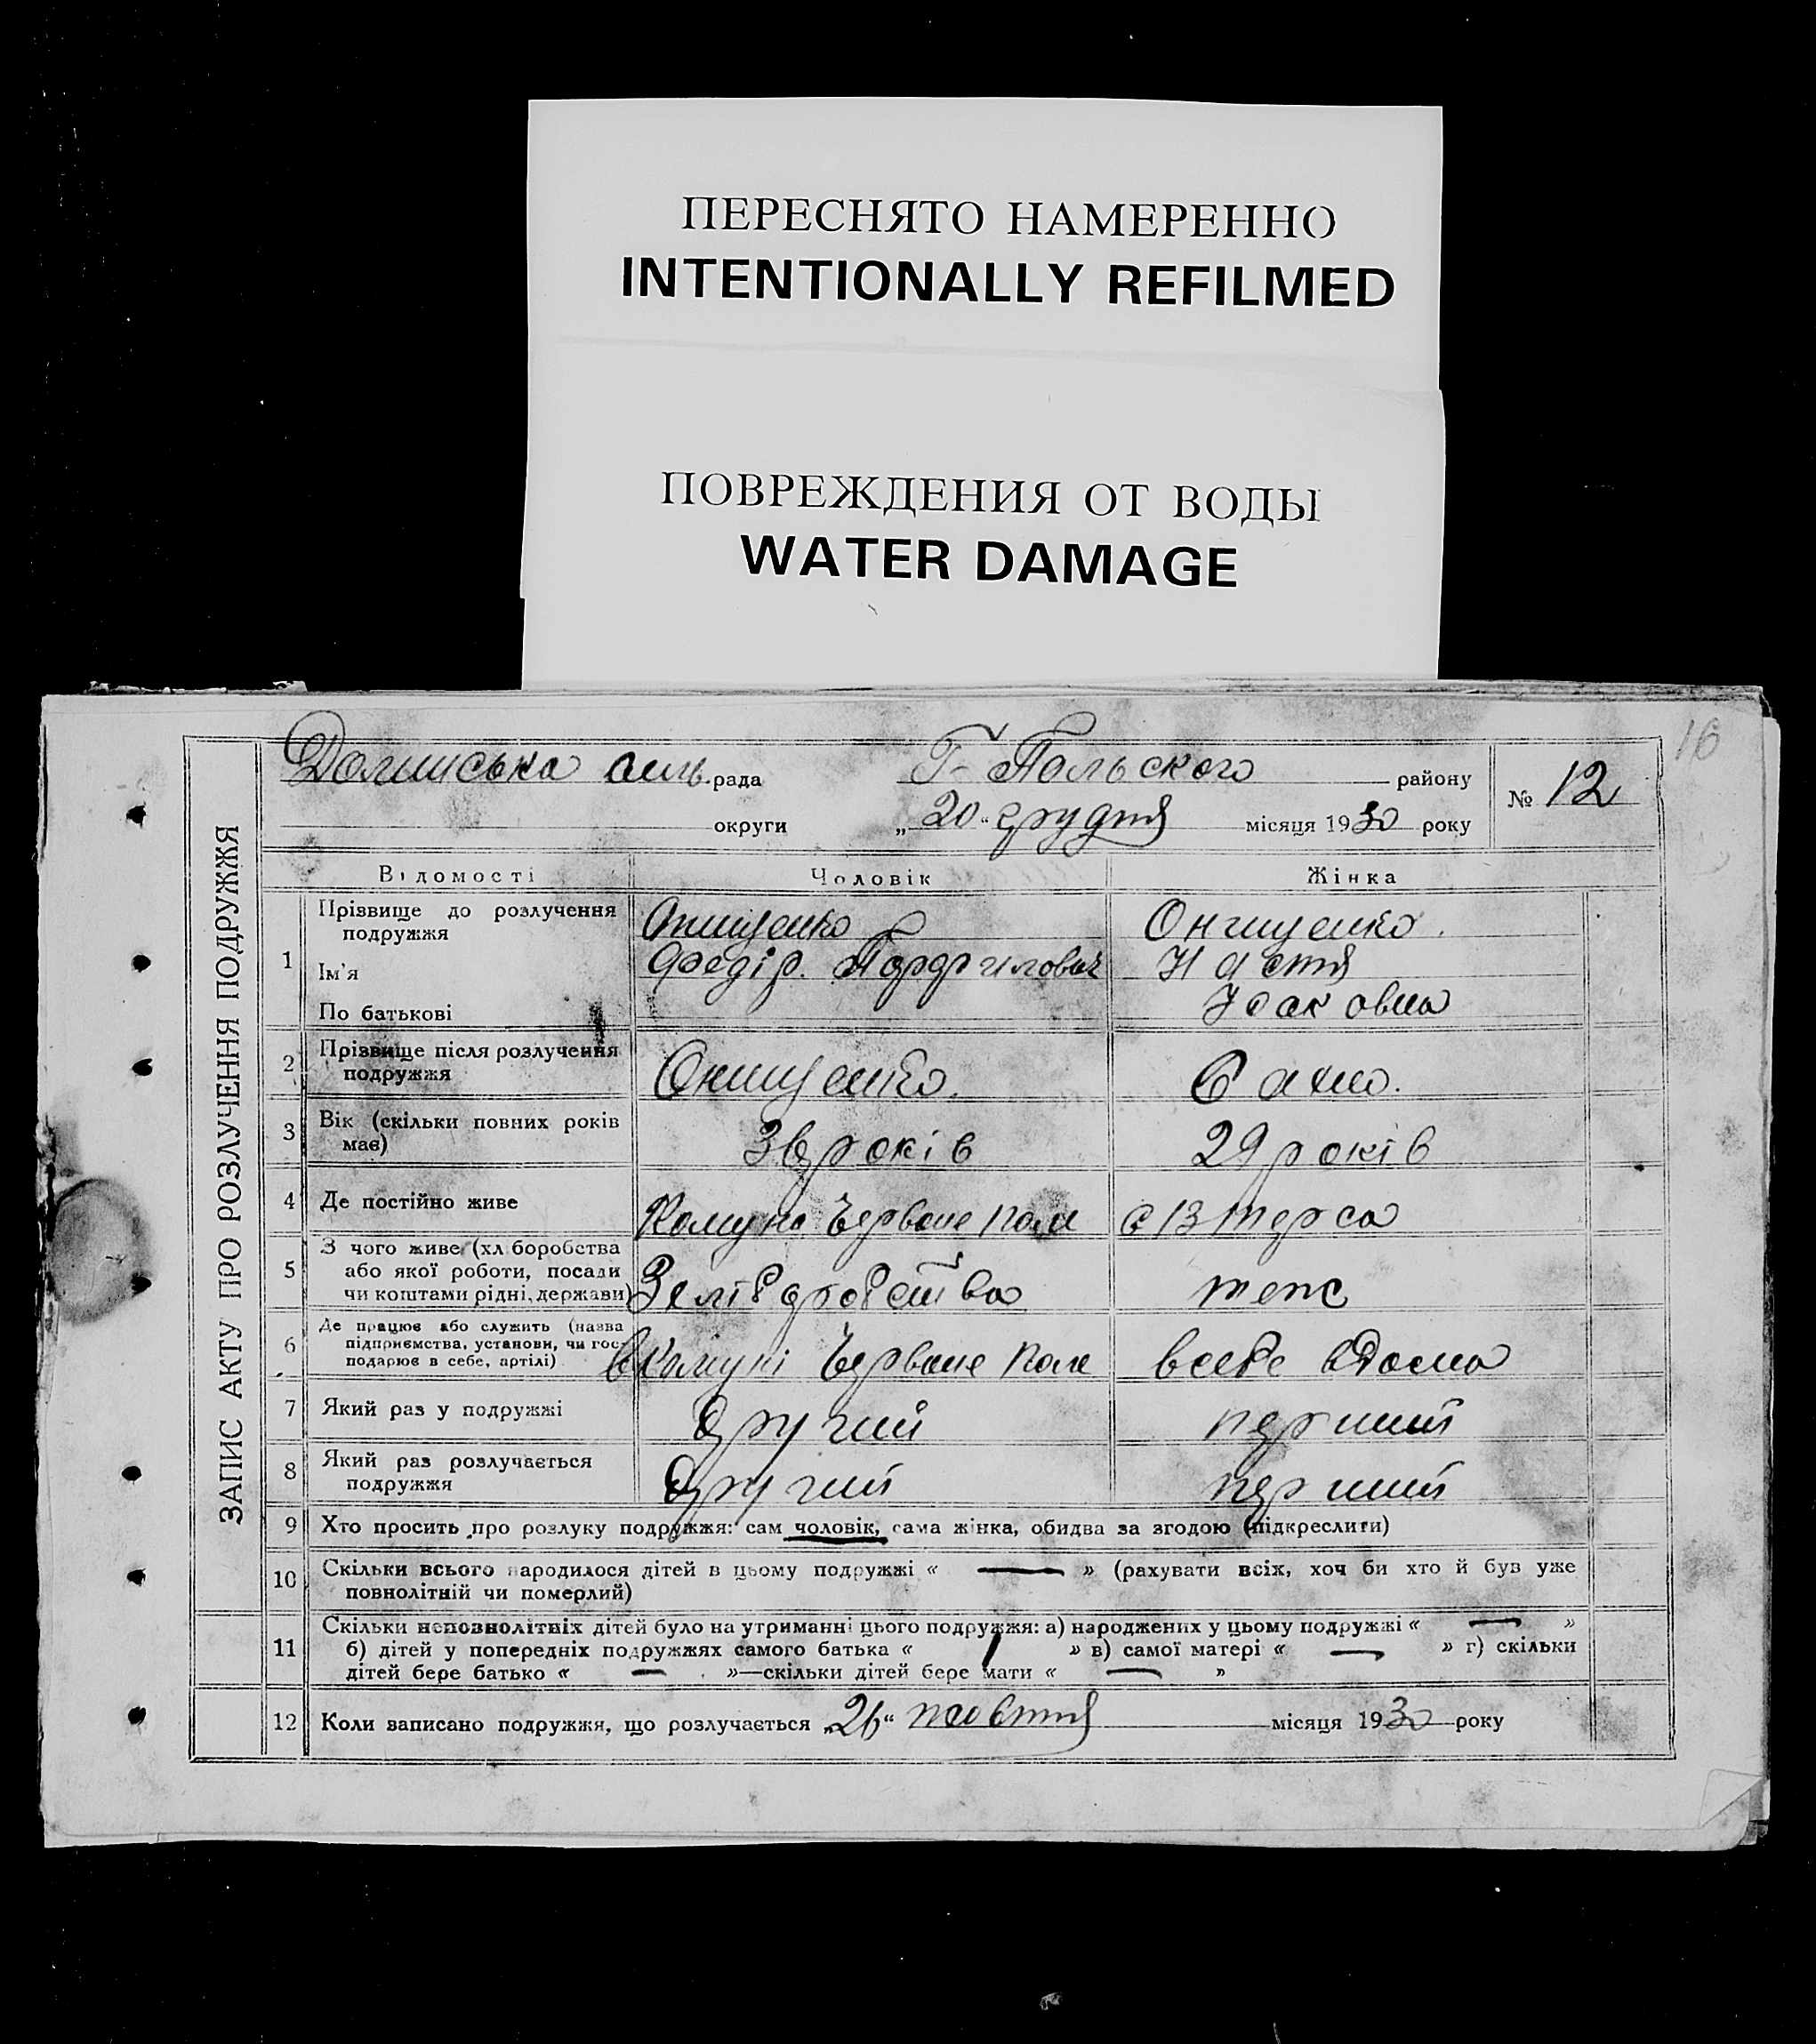 ПЕРЕСНЯТО НАМЕРЕННО
INTENTIONALLY REFILMED
ПОВРЕЖДЕНИЯ ОТ ВОДЫ
WATER DAMAGE
16
Долинська сель. рада Г-Польского району № 12
округи „20“ грудня місяця 1930 року
ЗАПИС АКТУ ПРО РОЗЛУЧЕННЯ ПОДРУЖЖЯ
Відомості Чоловік Жінка
1 Прізвище до розлучення подружжя Онищенко Онищенко.
Ім'я Федір. Порфилович Настя
По батькові Юаковна
2 Прізвище після розлучення подружжя Онищенко.
3 Вік (скільки повних років має) років 29 років
4 Де постійно живе Комуна Червоне поле с Втерса
5 З чого живе (хл боробства або якої роботи, посади чи коштами рідні, держави) теж
6 Де працює або служить (назва підприємства, установи, чи господарює в себе, артілі) в Комуні Червоне поле в себе вдома
7 Який раз у подружжі другий перший
8 Який раз розлучається подружжя другий перший
9 Хто просить про розлуку подружжя: сам чоловік, сама жінка, обидва за згодою (підкреслити)
10 Скільки всього народилося дітей в цьому подружжі « — » (рахувати всіх, хоч би хто й був уже
повнолітній чи померлий)
11 Скільки неповнолітніх дітей було на утриманні цього подружжя: а) народжених у цьому подружжі « — »
б) дітей у попередніх подружжях самого батька « / » в) самої матері « — » г) скільки
дітей бере батько « — »—скільки дітей бере мати « — »
12 Коли записано подружжя, що розлучається „26“ жовтня місяця 1930 року